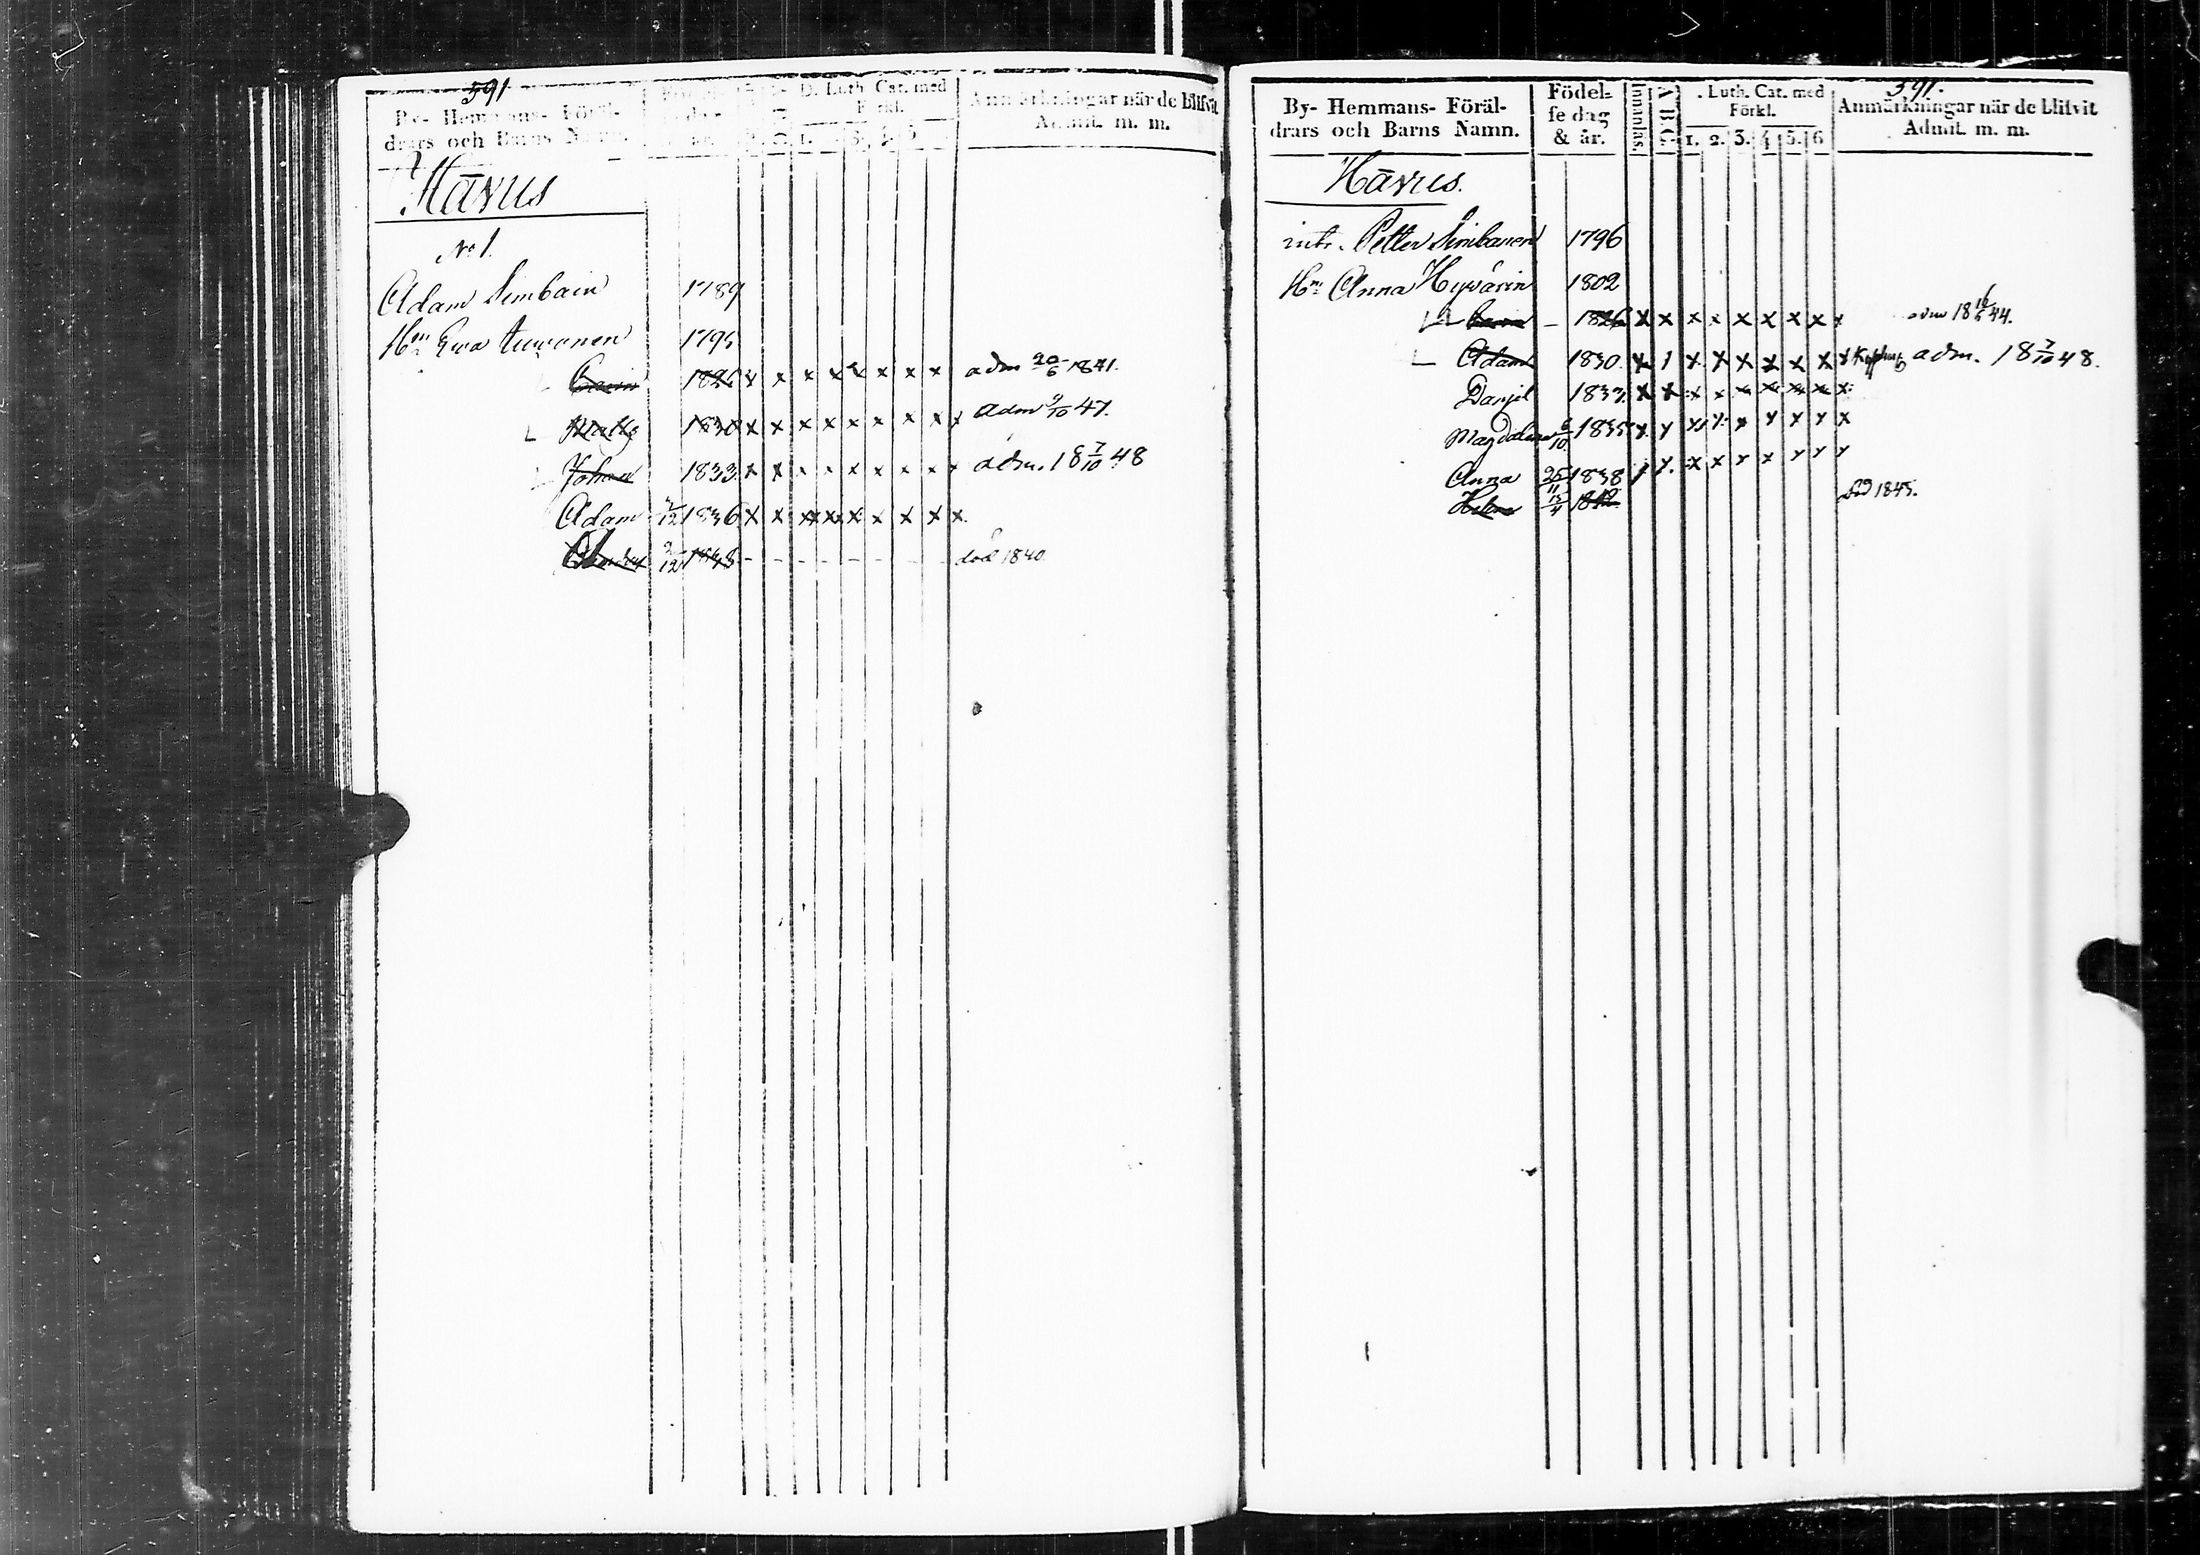 591
By- Hemmans- Föräl-
drars och Barns Namn.
D. Luth. Cat. med
Förkl.
Anmärkningar när de blifvit
Admit. m. m.
Hävus
No 1.
Adam Simbain 1789
Hu Ewa 1795
Carin 1826 x x x x x x x x adm 20/6 1841.
1830 x x x x x x x x x adm 9/10 47.
Johan 1833 x x x x x x x x x adm. 18 7/10 48
Adam 1836 x x x x x x x x x
2/12 död 1840.
591.
By- Hemmans- Föräl-
drars och Barns Namn.
Födel-
se dag
& år.
Innanläs.
A B C.
. Luth. Cat. med
Förkl.
1. 2. 3. 4 5. 6
Anmärkningar när de blifvit
Admit. m. m.
Hävus.
Petter Simbanen 1796
Hu Anna Hyvärin 1802
1826 x x x x x x x x x adm 18 44.
Adam 1830. x 1 x x x x x x x adm. 18 7/10 48.
Danjel x x x x x x x x x
Magdalena 6/10 1835 x y x x x y y y x
Anna 25/11 1838 1 y. x x y x y y y
Helena 13/4 1842 död 1845.